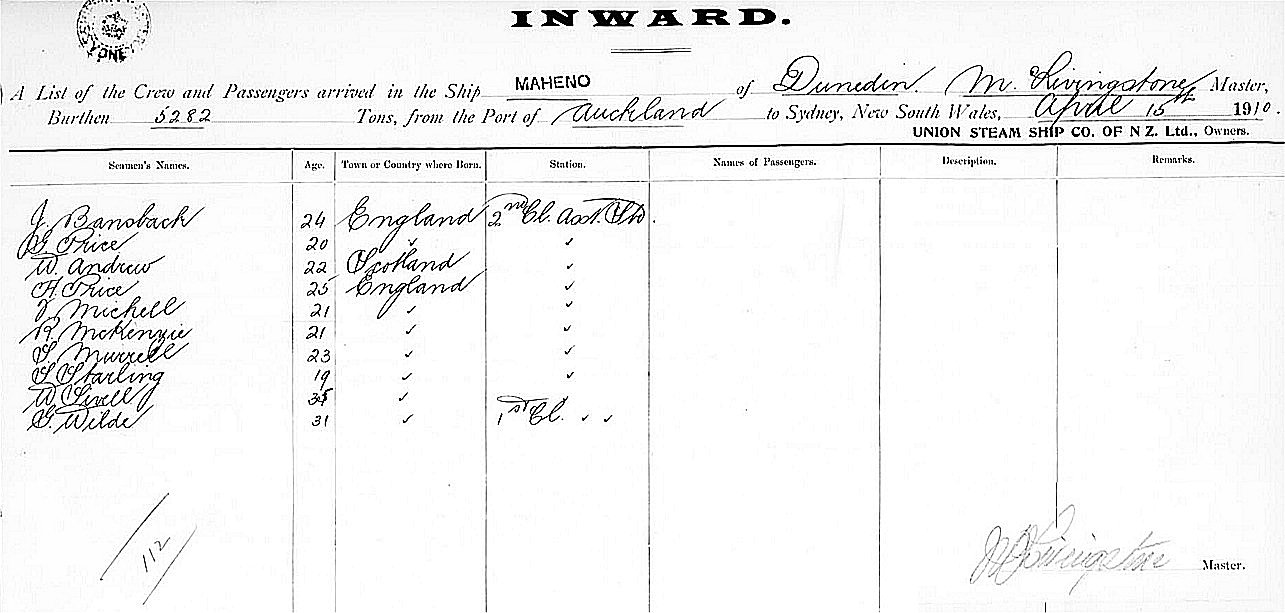 INWARD.
A List of the Crew and Passengers arrived in the Ship MAHENO of Dunedin. M. Livingstone Master,
Burthen 5282 Tons, from the Port of Auckland to Sydney, New South Wales, April 15th 1910.
UNION STEAM SHIP CO. OF N Z. Ltd., Owners.
Seamen's Names. Age. Town or Country where Born. Station. Names of Passengers. Description. Remarks.
J. Bansback 24 England 2nd Cl. Ast. Std.
Price 20 ✓ ✓
W. Andrew 22 Scotland ✓
A Price 25 England ✓
V Michell 21 ✓ ✓
R. McKenzie 21 ✓ ✓
S Murrell 23 ✓ ✓
S Starling 19 ✓ ✓
W ✓
G. Wilde 31 ✓ 1st Cl. ✓ ✓
112
Livingstone Master.